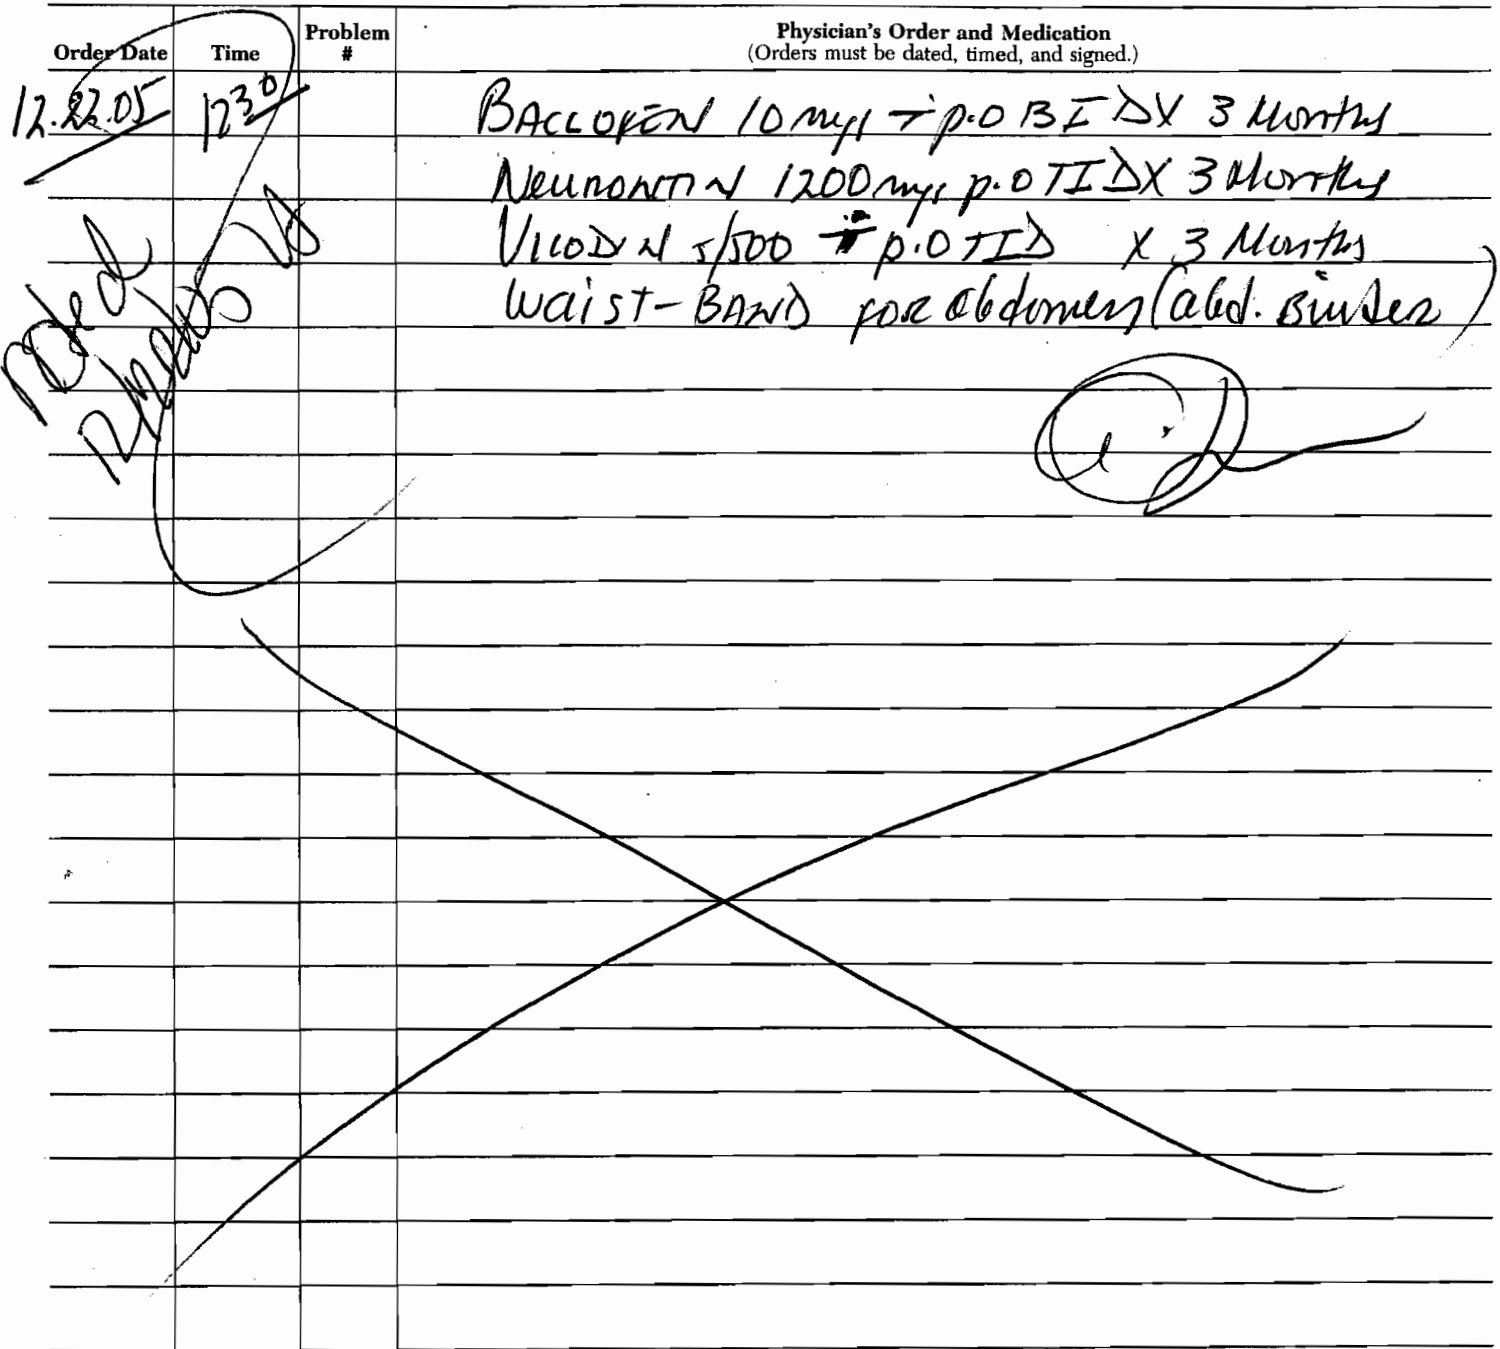 Order Date Time Problem # Physician's Order and Medication
(Orders must be dated, timed, and signed.)
12.22.05 1230 BACLOFEN 10 mgs T p.o BID X 3 Months
Neurontin 1200 mgs p.o TID X 3 Months
VICODIN 5/500 p.o TID X 3 Months
Waist-BAND FOR abdomen (abd. Binder)
Noted